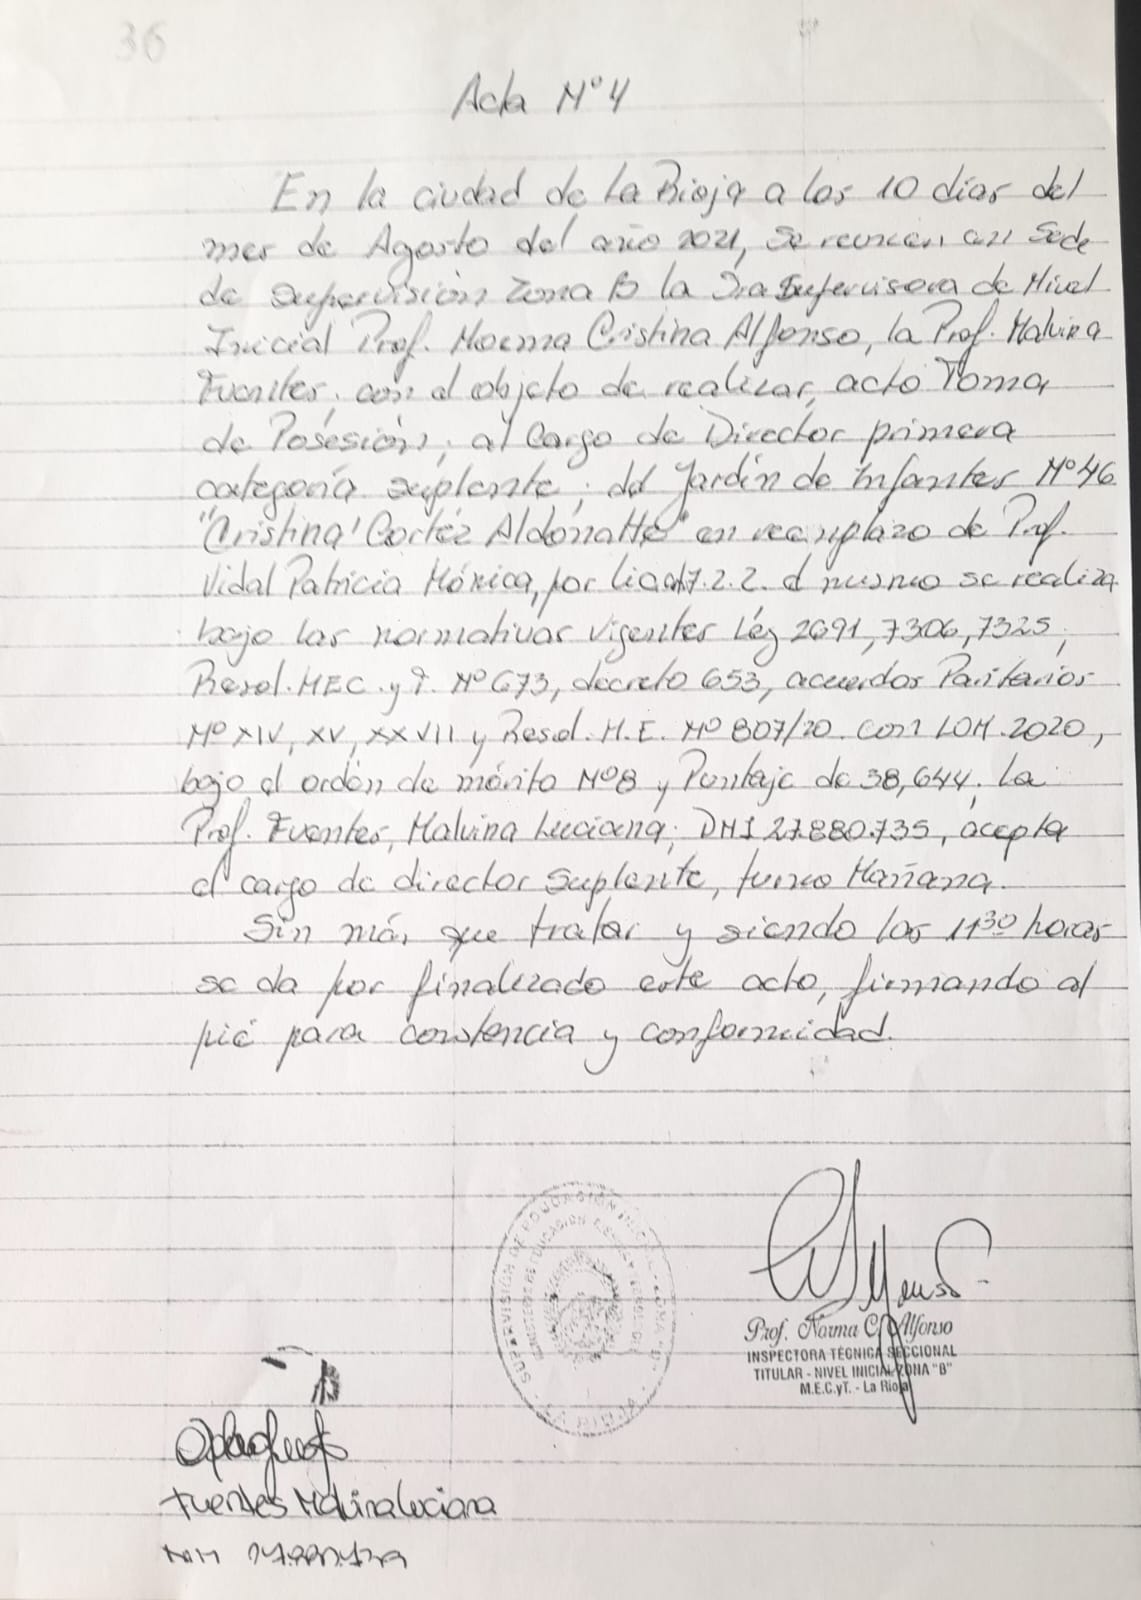 36
Acta Nº 4
En la ciudad de La Rioja a los 10 días del
mes de Agosto del año 2021, se reunen en Sede
de Supervisión Zona B la Sra Supervisora de Nivel
Inicial Prof. Norma Cristina Alfonso, la Prof. Malvina
Fuentes, con el objeto de realizar, acto Toma
de Posesión, al Cargo de Director primera
categoría suplente, del Jardín de Infantes Nº 46
"Cristina Cortéz Aldonatte" en reemplazo de Prof.
Vidal Patricia Mónica, por Lic. 7.2.2. el mismo se realiza
bajo las normativas vigentes Ley 2691, 7306, 7325,
Resol. MEC. y T. Nº 673, decreto 653, acuerdos Paritarios
Nº XIV, XV, XXVII y Resol. M.E. Nº 807/20. con LOM. 2020,
bajo el ordén de mérito Nº8 y Puntaje de 38,644. La
Prof. Fuentes, Malvina Luciana, DNI 27.880.735, acepta
el cargo de director Suplente, turno Mañana.
Sin más que tratar y siendo las 11³⁰ horas
se da por finalizado este acto, firmando al
pié para constencia y conformidad.
SUPERVISIÓN DE EDUCACIÓN INICIAL ZONA "B"
MINISTERIO DE EDUCACIÓN
LA RIOJA
Prof. Norma C. Alfonso
INSPECTORA TÉCNICA SECCIONAL
TITULAR - NIVEL INICIAL ZONA "B"
M.E.C.yT. - La Rioja
Fuentes Malvina Luciana